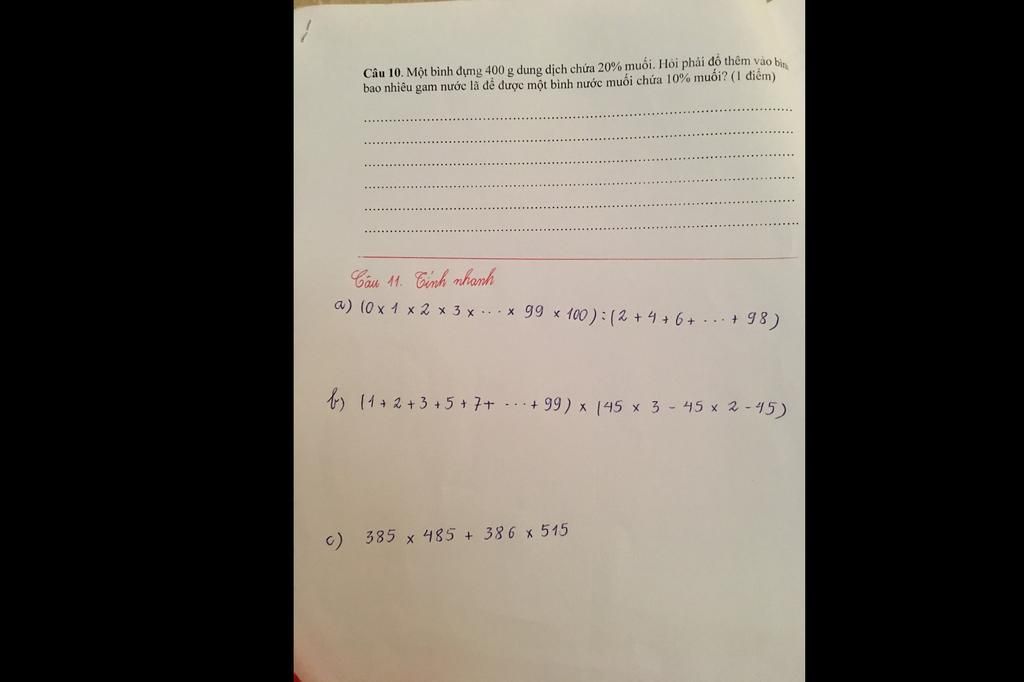 Câu 10. Một bình đựng 400 g dung dịch chứa 20% muối. Hỏi phải đổ thêm vào bình
bao nhiêu gam nước lã để được một bình nước muối chứa 10% muối? (1 điểm)
Câu 11. Tính nhanh
a) (0 x 1 x 2 x 3 x ... x 99 x 100) : (2 + 4 + 6 + ... + 98)
b) (1 + 2 + 3 + 5 + 7 + ... + 99) x (45 x 3 - 45 x 2 - 45)
c) 385 x 485 + 386 x 515